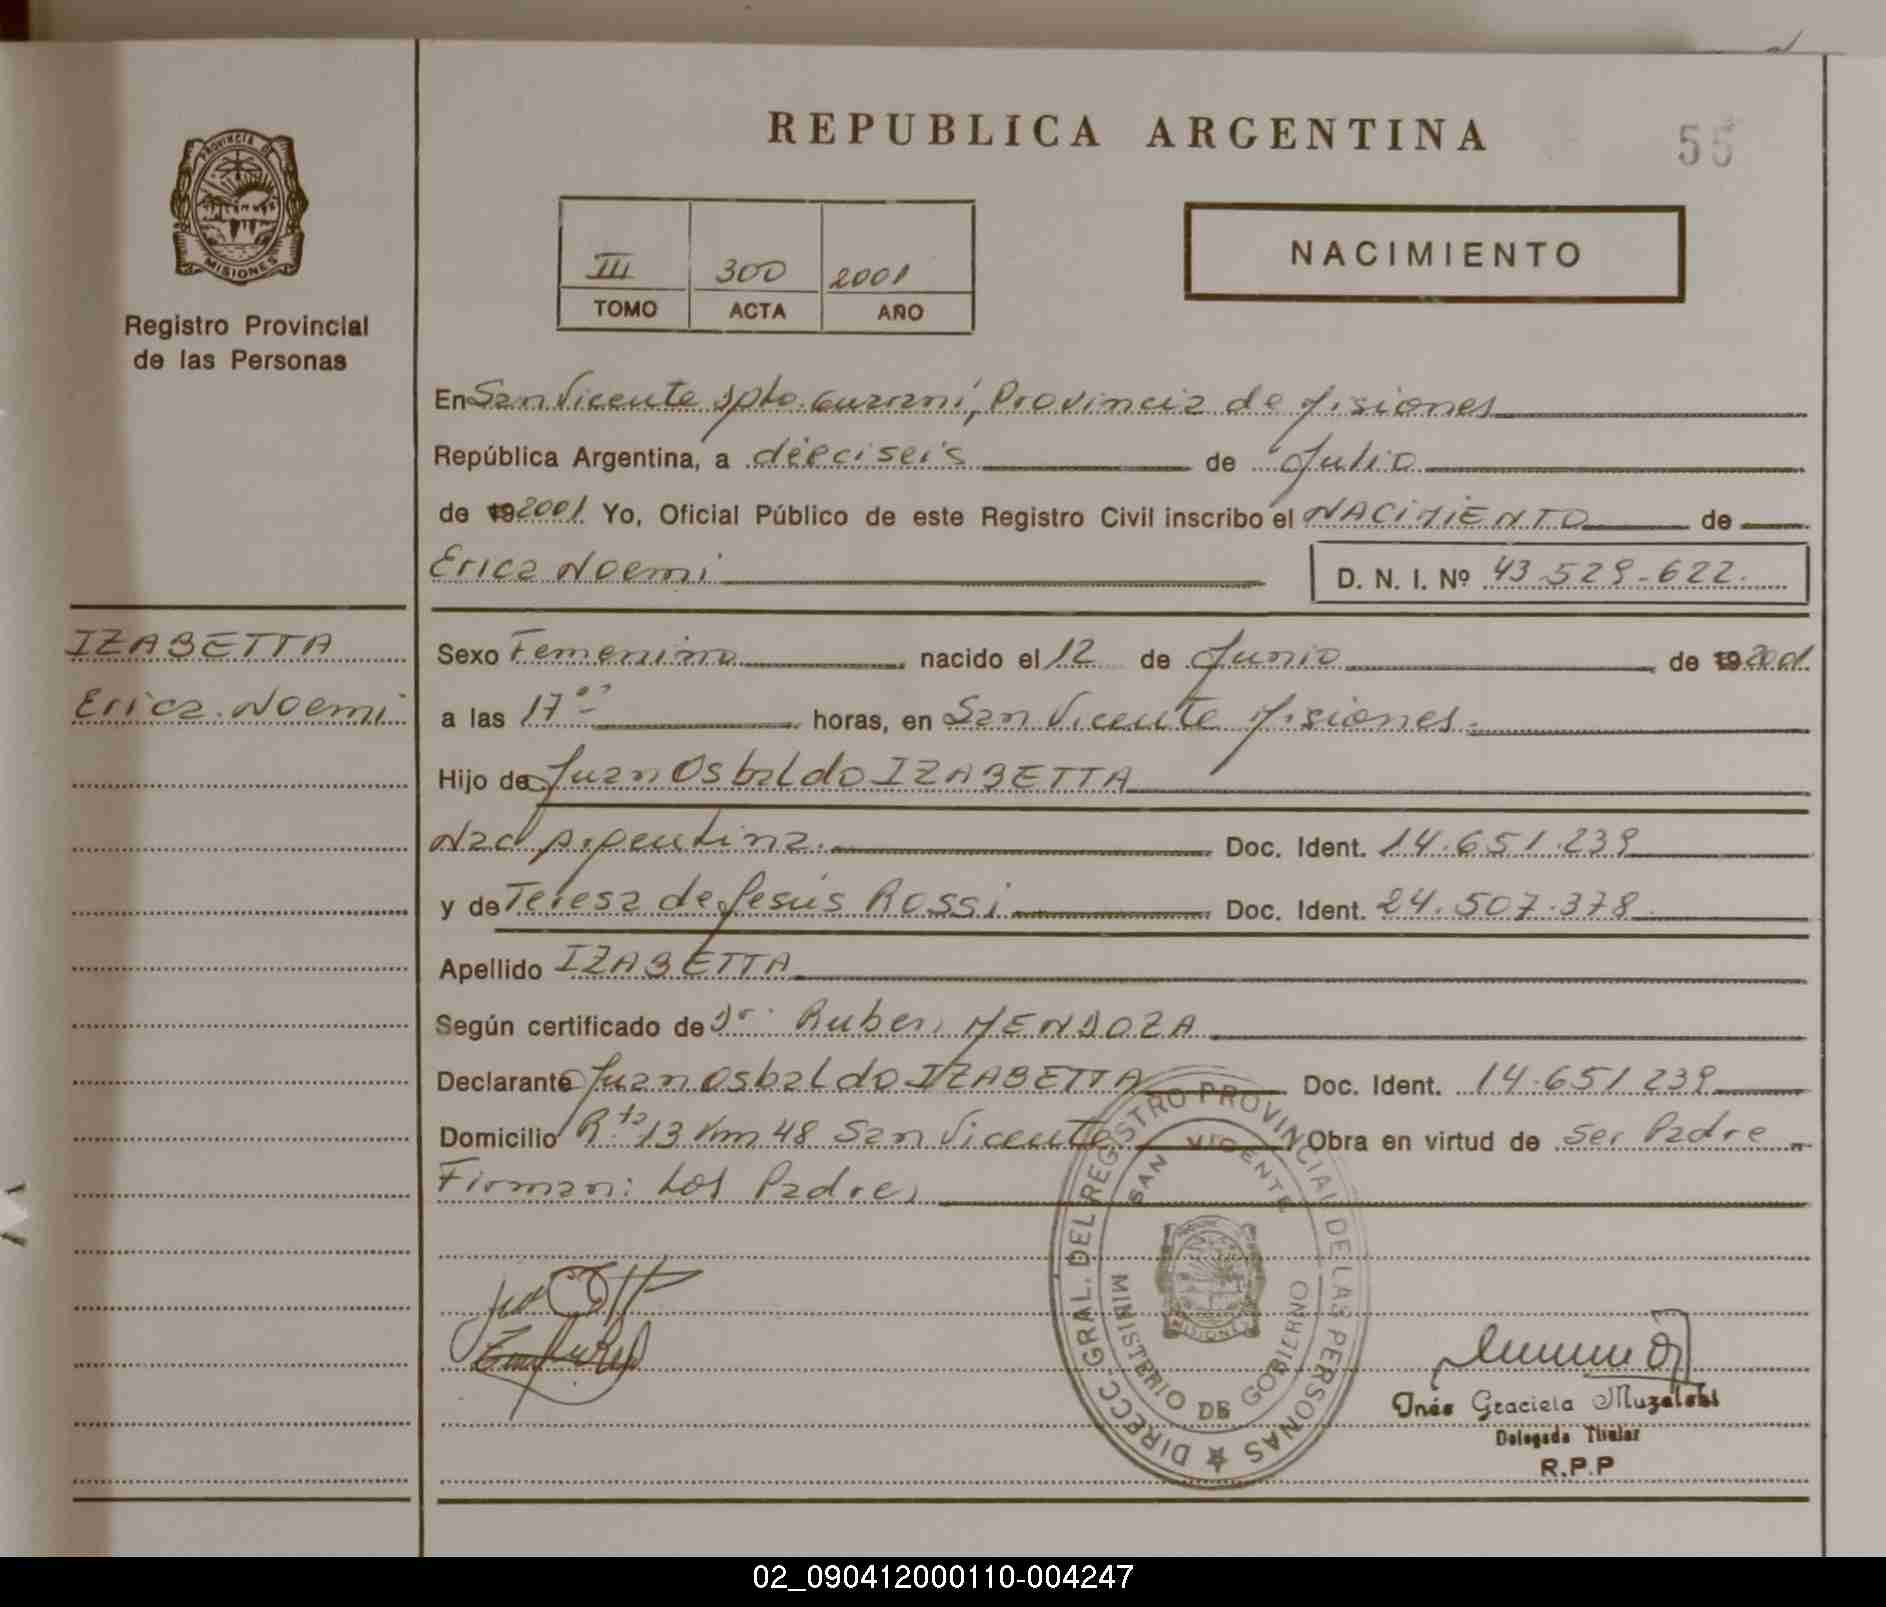 REPUBLICA ARGENTINA
55
PROVINCIA DE
MISIONES
Registro Provincial
de las Personas
III 300 2001
TOMO ACTA AÑO
NACIMIENTO
En San Vicente Dpto. Guaraní, Provincia de Misiones
República Argentina, a dieciseis de Julio
de 19 2001 Yo, Oficial Público de este Registro Civil inscribo el NACIMIENTO de
Erica Noemi D. N. I. Nº 43.529.622.
IZABETTA
Erica Noemi
Sexo Femenino nacido el 12 de Junio de 19 2001
a las 17 horas, en San Vicente Misiones.
Hijo de Juan Osbaldo IZABETTA
Nac Argentina. Doc. Ident. 14.651.239
y de Teresa de Jesús Rossi Doc. Ident. 24.507.378
Apellido IZABETTA
Según certificado de Dr. Ruben MENDOZA
Declarante Juan Osbaldo IZABETTA Doc. Ident. 14.651.239
Domicilio Rta 13 Km 48 San Vicente Obra en virtud de ser Padre
Firman: Los Padres
DIRECC. GRAL. DEL REGISTRO PROVINCIAL DE LAS PERSONAS
SAN VICENTE
MISIONES
MINISTERIO DE GOBIERNO
Inés Graciela
Delegada Titular
R.P.P
02_090412000110-004247